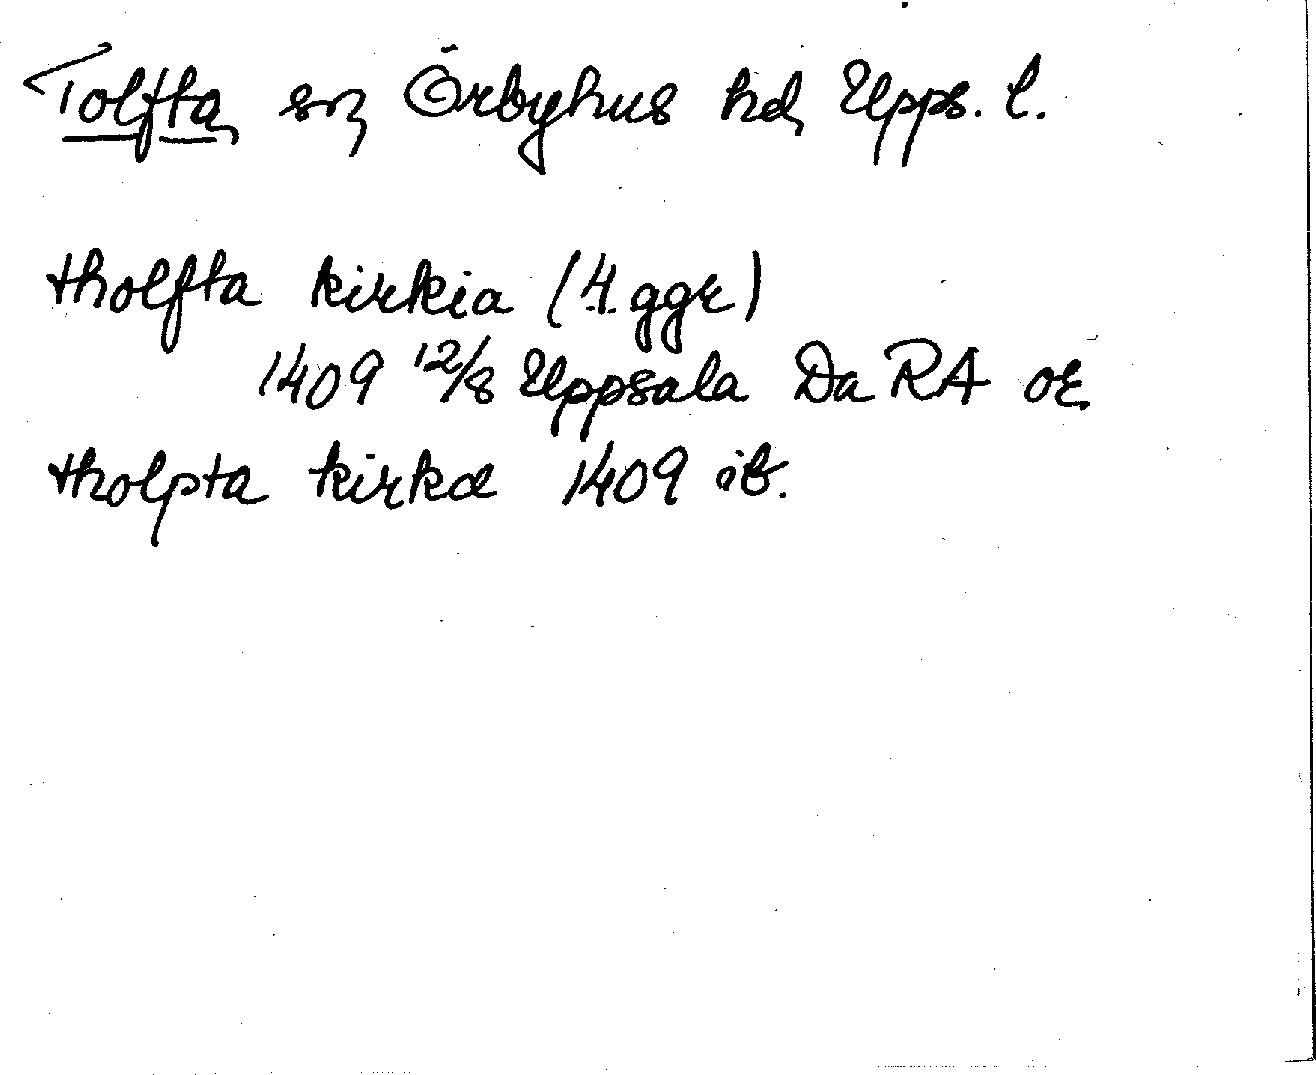 Tolfta sn Örbyhus hd Upps. l.
tholfta kirkia (4 ggr)
1409 12/8 Uppsala Da RA or
tholpta kirkæ 1409 ib.